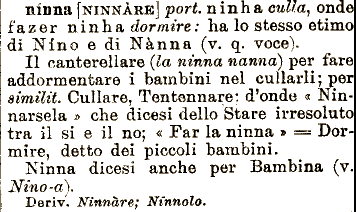 nínna [NINNÀRE] port. ninha culla, onde
fazer ninha dormire: ha lo stesso etimo
di Níno e di Nànna (v. q. voce).
Il canterellare (la ninna nanna) per fare
addormentare i bambini nel cullarli; per
similit. Cullare, Tentennare: d'onde « Nin-
narsela » che dicesi dello Stare irresoluto
tra il si e il no; « Far la ninna » = Dor-
mire, detto dei piccoli bambini.
Ninna dicesi anche per Bambina (v.
Nino-a).
Deriv. Ninnàre; Ninnolo.